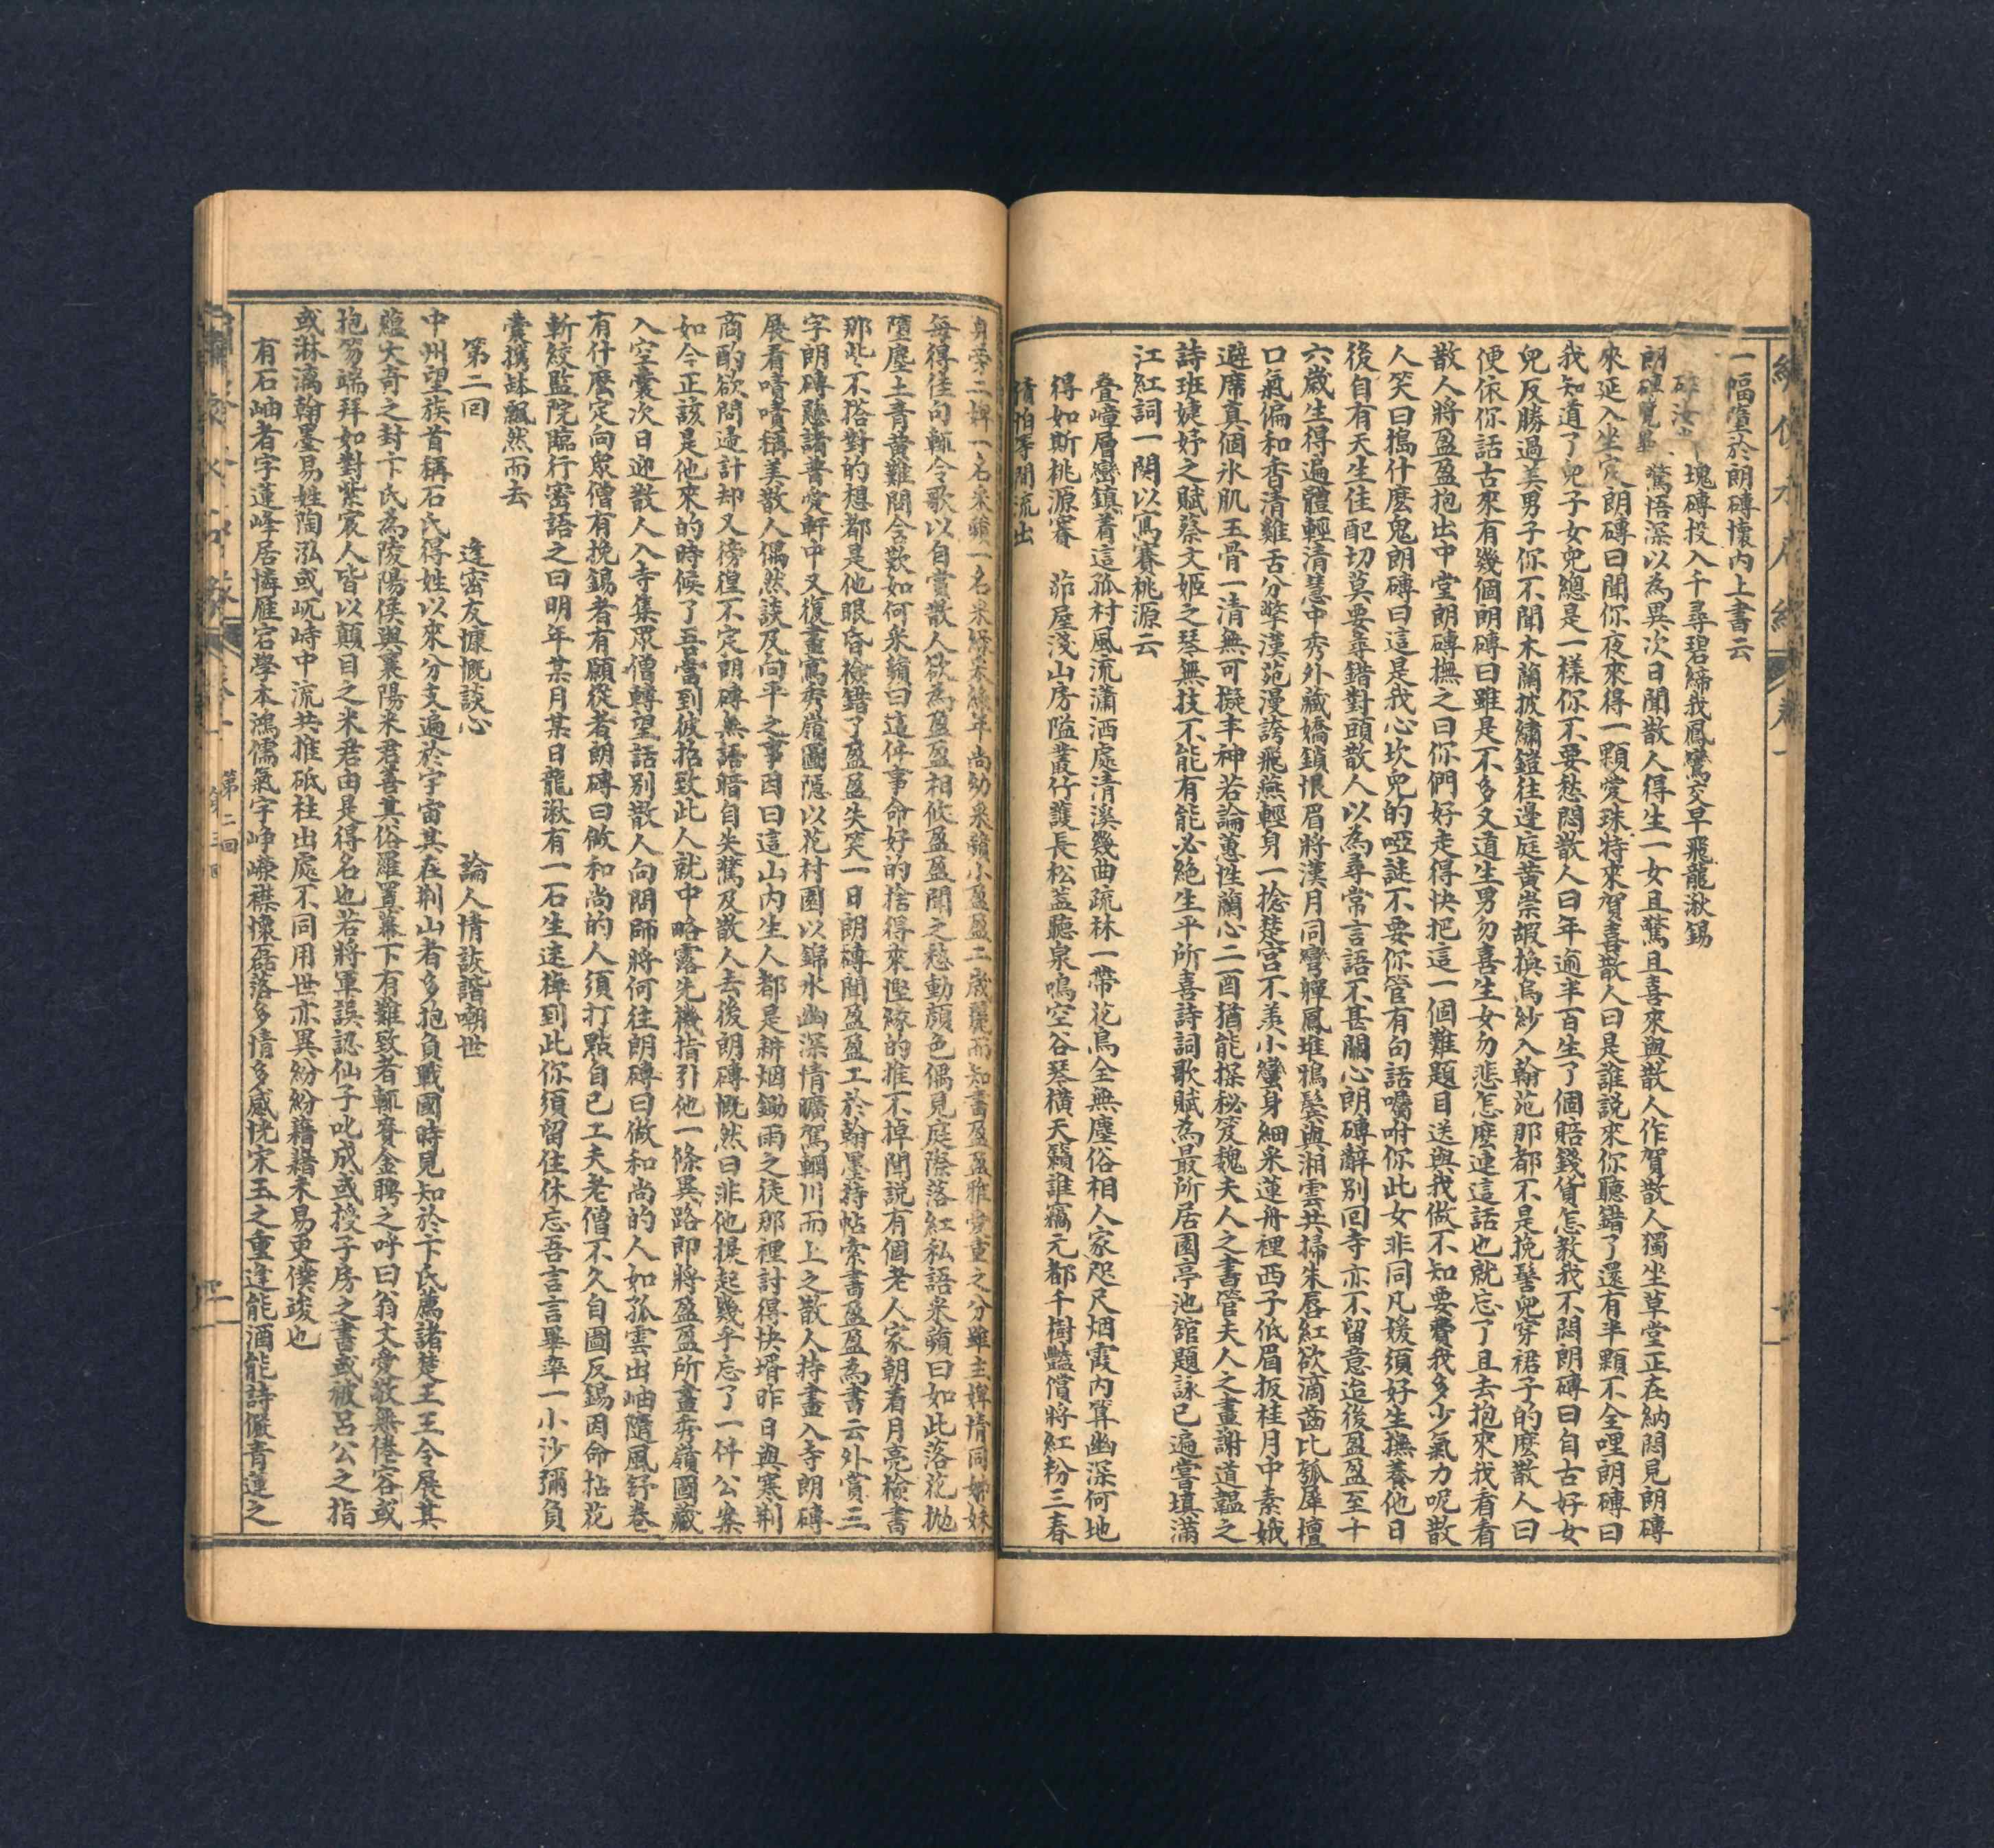 一幅窒於朗磚懷内上書云
塊磚投入千尋碧締我鳳鸞交早飛龍湫錫
朗磚覽畢驚悟深以為異次日聞散人得生一女且驚且喜來與散人作賀散人獨坐草堂正在納悶見朗磚
來延入坐定朗磚曰聞你夜來得一顆愛珠特來賀喜散人曰是誰說來你聽錯了還有半顆不全哩朗磚曰
我知道了兒子女兒總是一樣你不要愁悶散人曰年逾半百生了個賠錢貨怎教我不悶朗磚曰自古好女
兒反勝過美男子你不聞木蘭披繡鎧往邊庭黄崇嘏換烏紗入翰苑那都不是挽髻兒穿裙子的麽散人曰
便依你話古來有幾個朗磚曰雖是不多又道生男勿喜生女勿悲怎麽連這話也就忘了且去抱來我看看
散人將盈盈抱出中堂朗磚撫之曰你們好走得快把這一個難題目送與我做不知要費我多少氣力呢散
人笑曰搗什麽鬼朗磚曰這是我心坎兒的啞謎不要你管有句話囑咐你此女非同凡媛須好生撫養他日
後自有天生佳配切莫要尋錯對頭散人以為尋常言語不甚關心朗磚辭別回寺亦不留意迨後盈盈至十
六歲生得遍體輕清慧中秀外藏嬌鎖恨眉將漢月同彎軃鳳堆鴉鬓與湘雲共掃朱唇紅欲滴齒比瓠犀檀
口氣偏和香清雞舌分擎漢苑漫誇飛燕輕身一捻楚宫不羨小蠻身細采蓮舟裡西子低眉扳桂月中素娥
避席真個氷肌玉骨一清無可擬丰神若論蕙性蘭心二酉猶能探秘笈魏夫人之書管夫人之畫謝道韞之
詩班婕妤之賦蔡文姬之琴無技不能有能必絶生平所喜詩詞歌賦為最所居園亭池舘題詠已遍嘗填滿
江紅詞一闋以寫賽桃源云
叠嶂層巒鎮着這孤村風流瀟洒處清溪幾曲疏林一帶花鳥全無塵俗相人家咫尺烟霞内算幽深何地
得如斯桃源賽　茆屋淺山房隘叢竹護長松盖聽泉鳴空谷琴横天籟誰竊元都千樹豔償將紅粉三春
債怕等閒流出
身旁二婢一名采蘋一名采綠采綠年尚幼采蘋小盈盈二歲麗而知書盈盈雅愛重之分雖主婢情同姊妹
每得佳句輒令歌以自賞散人欲為盈盈相攸盈盈聞之愁動顔色偶見庭際落紅私語采蘋曰如此落花抛
墮塵土青黄難問令歎如何采蘋曰這件事命好的捨得來慳吝的推不掉聞說有個老人家朝着月亮檢書
那些不搭對的想都是他眼昏檢錯了盈盈失笑一日朗磚聞盈盈工於翰墨持帖索書盈盈為書云外賞三
字朗磚懸諸普愛軒中又復畫寫秀嶺圖隱以花村園以錦水幽深情曠駕輞川而上之散人持畫入寺朗磚
展看嘖嘖稱美散人偶然談及向平之事因曰這山内生人都是耕烟鋤雨之徒那裡討得快壻昨日與寒荆
商酌欲問遠計却又徬徨不定朗磚無語暗自失驚及散人去後朗磚慨然曰非他提起幾乎忘了一件公案
如今正該是他來的時候了吾當到彼招致此人就中略露先機指引他一條異路即將盈盈所畫秀嶺圖藏
入空囊次日迎散人入寺集眾僧轉望話別散人向問師將何往朗磚曰做和尚的人如孤雲出岫隨風舒卷
有什麽定向眾僧有挽錫者有願從者朗磚曰做和尚的人須打點自己工夫老僧不久自圖反錫因命拈花
斬絞監院臨行密語之曰明年某月某日龍湫有一石生迷棹到此你須留住休忘吾言言畢率一小沙彌負
囊攜缽飄然而去
第二回　逢密友慷慨談心　論人情詼諧嘲世
中州望族首稱石氏得姓以來分支遍於宇宙其在荆山者多抱負戰國時見知於卞氏薦諸楚王王令展其
蘊大奇之封卞氏為陵陽侯與襄陽米君善其俗羅置幕下有難致者輒賫金聘之呼曰翁丈愛敬無倦容或
抱笏端拜如對紫宸人皆以顛目之米君由是得名也若將軍誤認仙子叱成或授子房之書或被吕公之指
或淋漓翰墨易姓陶泓或屹峙中流共推砥柱出處不同用世亦異紛紛藉藉未易更僕竣也
有石岫者字蓮峰居懤雁宕學本鴻儒氣宇崢嶸襟懷磊落多情多感恍宋玉之重逢能酒能詩儼青蓮之
卷一
第二回